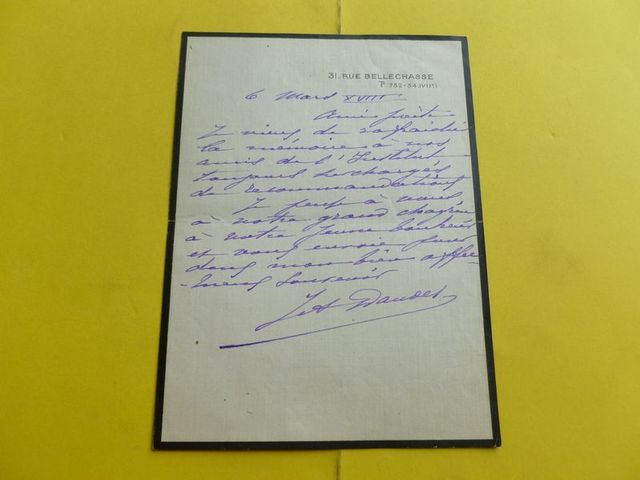 31. RUE BELLECHASSE
6 Mars XVIII
Ami poète
Je viens de rafraichir
la mémoire à nos
amis de l'Institut
toujours surchargés
de recommandations
Je pense à vous
à votre grand chagrin
à votre jeune bonheur
et vous envoie pour
mon bien affec-
tueux souvenir
Daudet